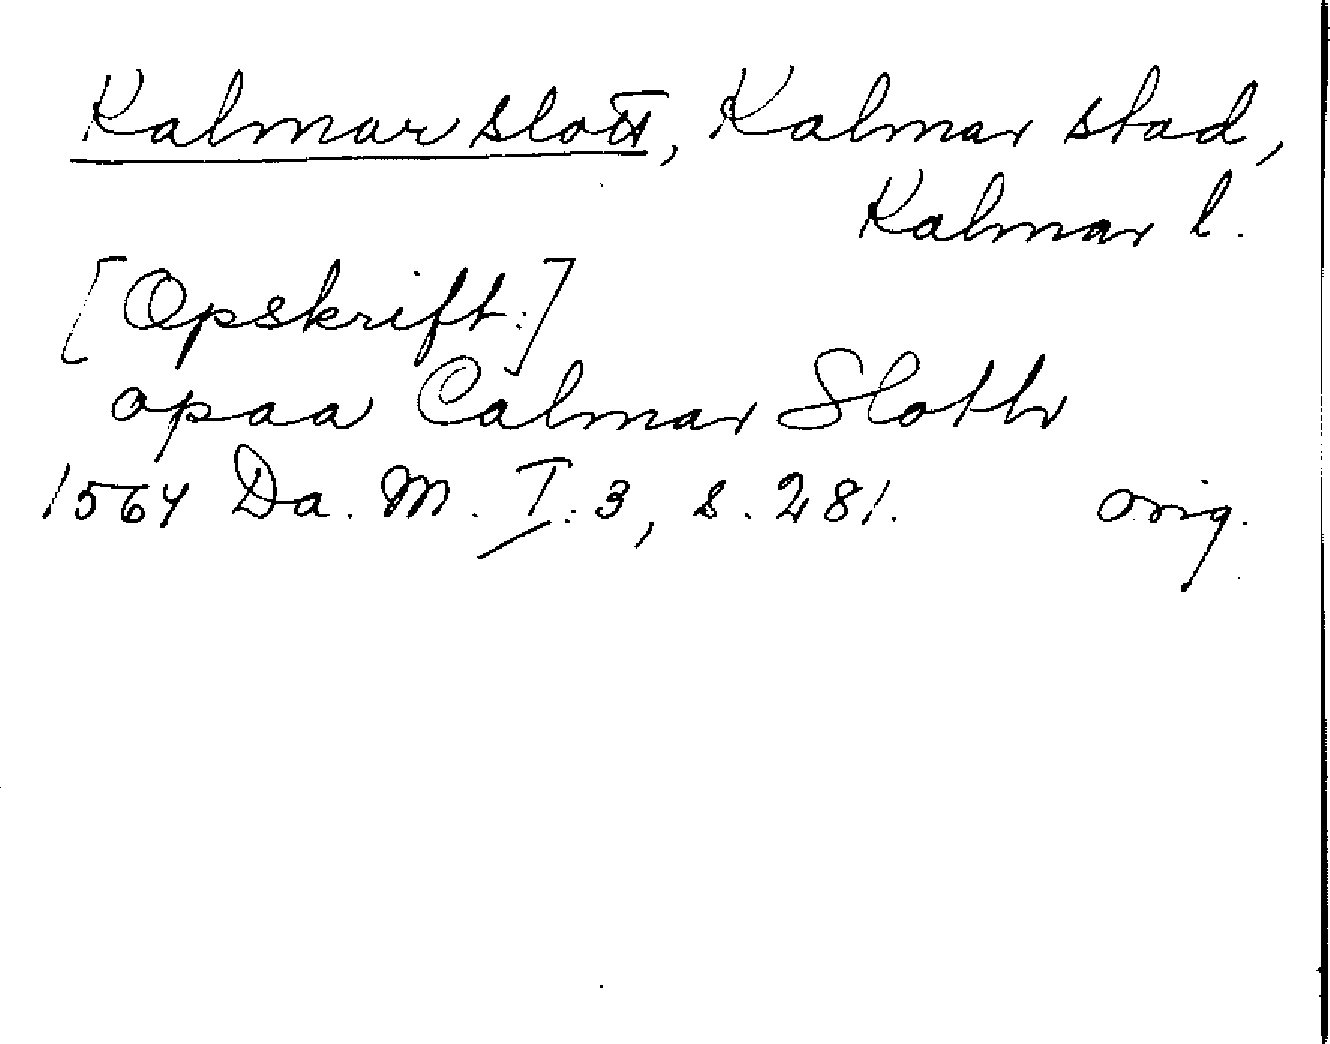 Kalmar slott, Kalmar stad,
Kalmar l.
[Opskrift:]
opaa Calmar Slothr
1564 Da. M. I:3, s. 281. orig.